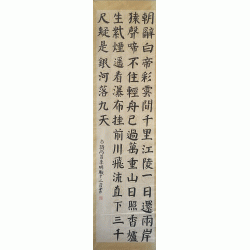 朝辭白帝彩雲間千里江陵一日還兩岸
猿聲啼不住輕舟已過萬重山日照香爐
生紫煙遙看瀑布挂前川飛流直下三千
尺疑是銀河落九天